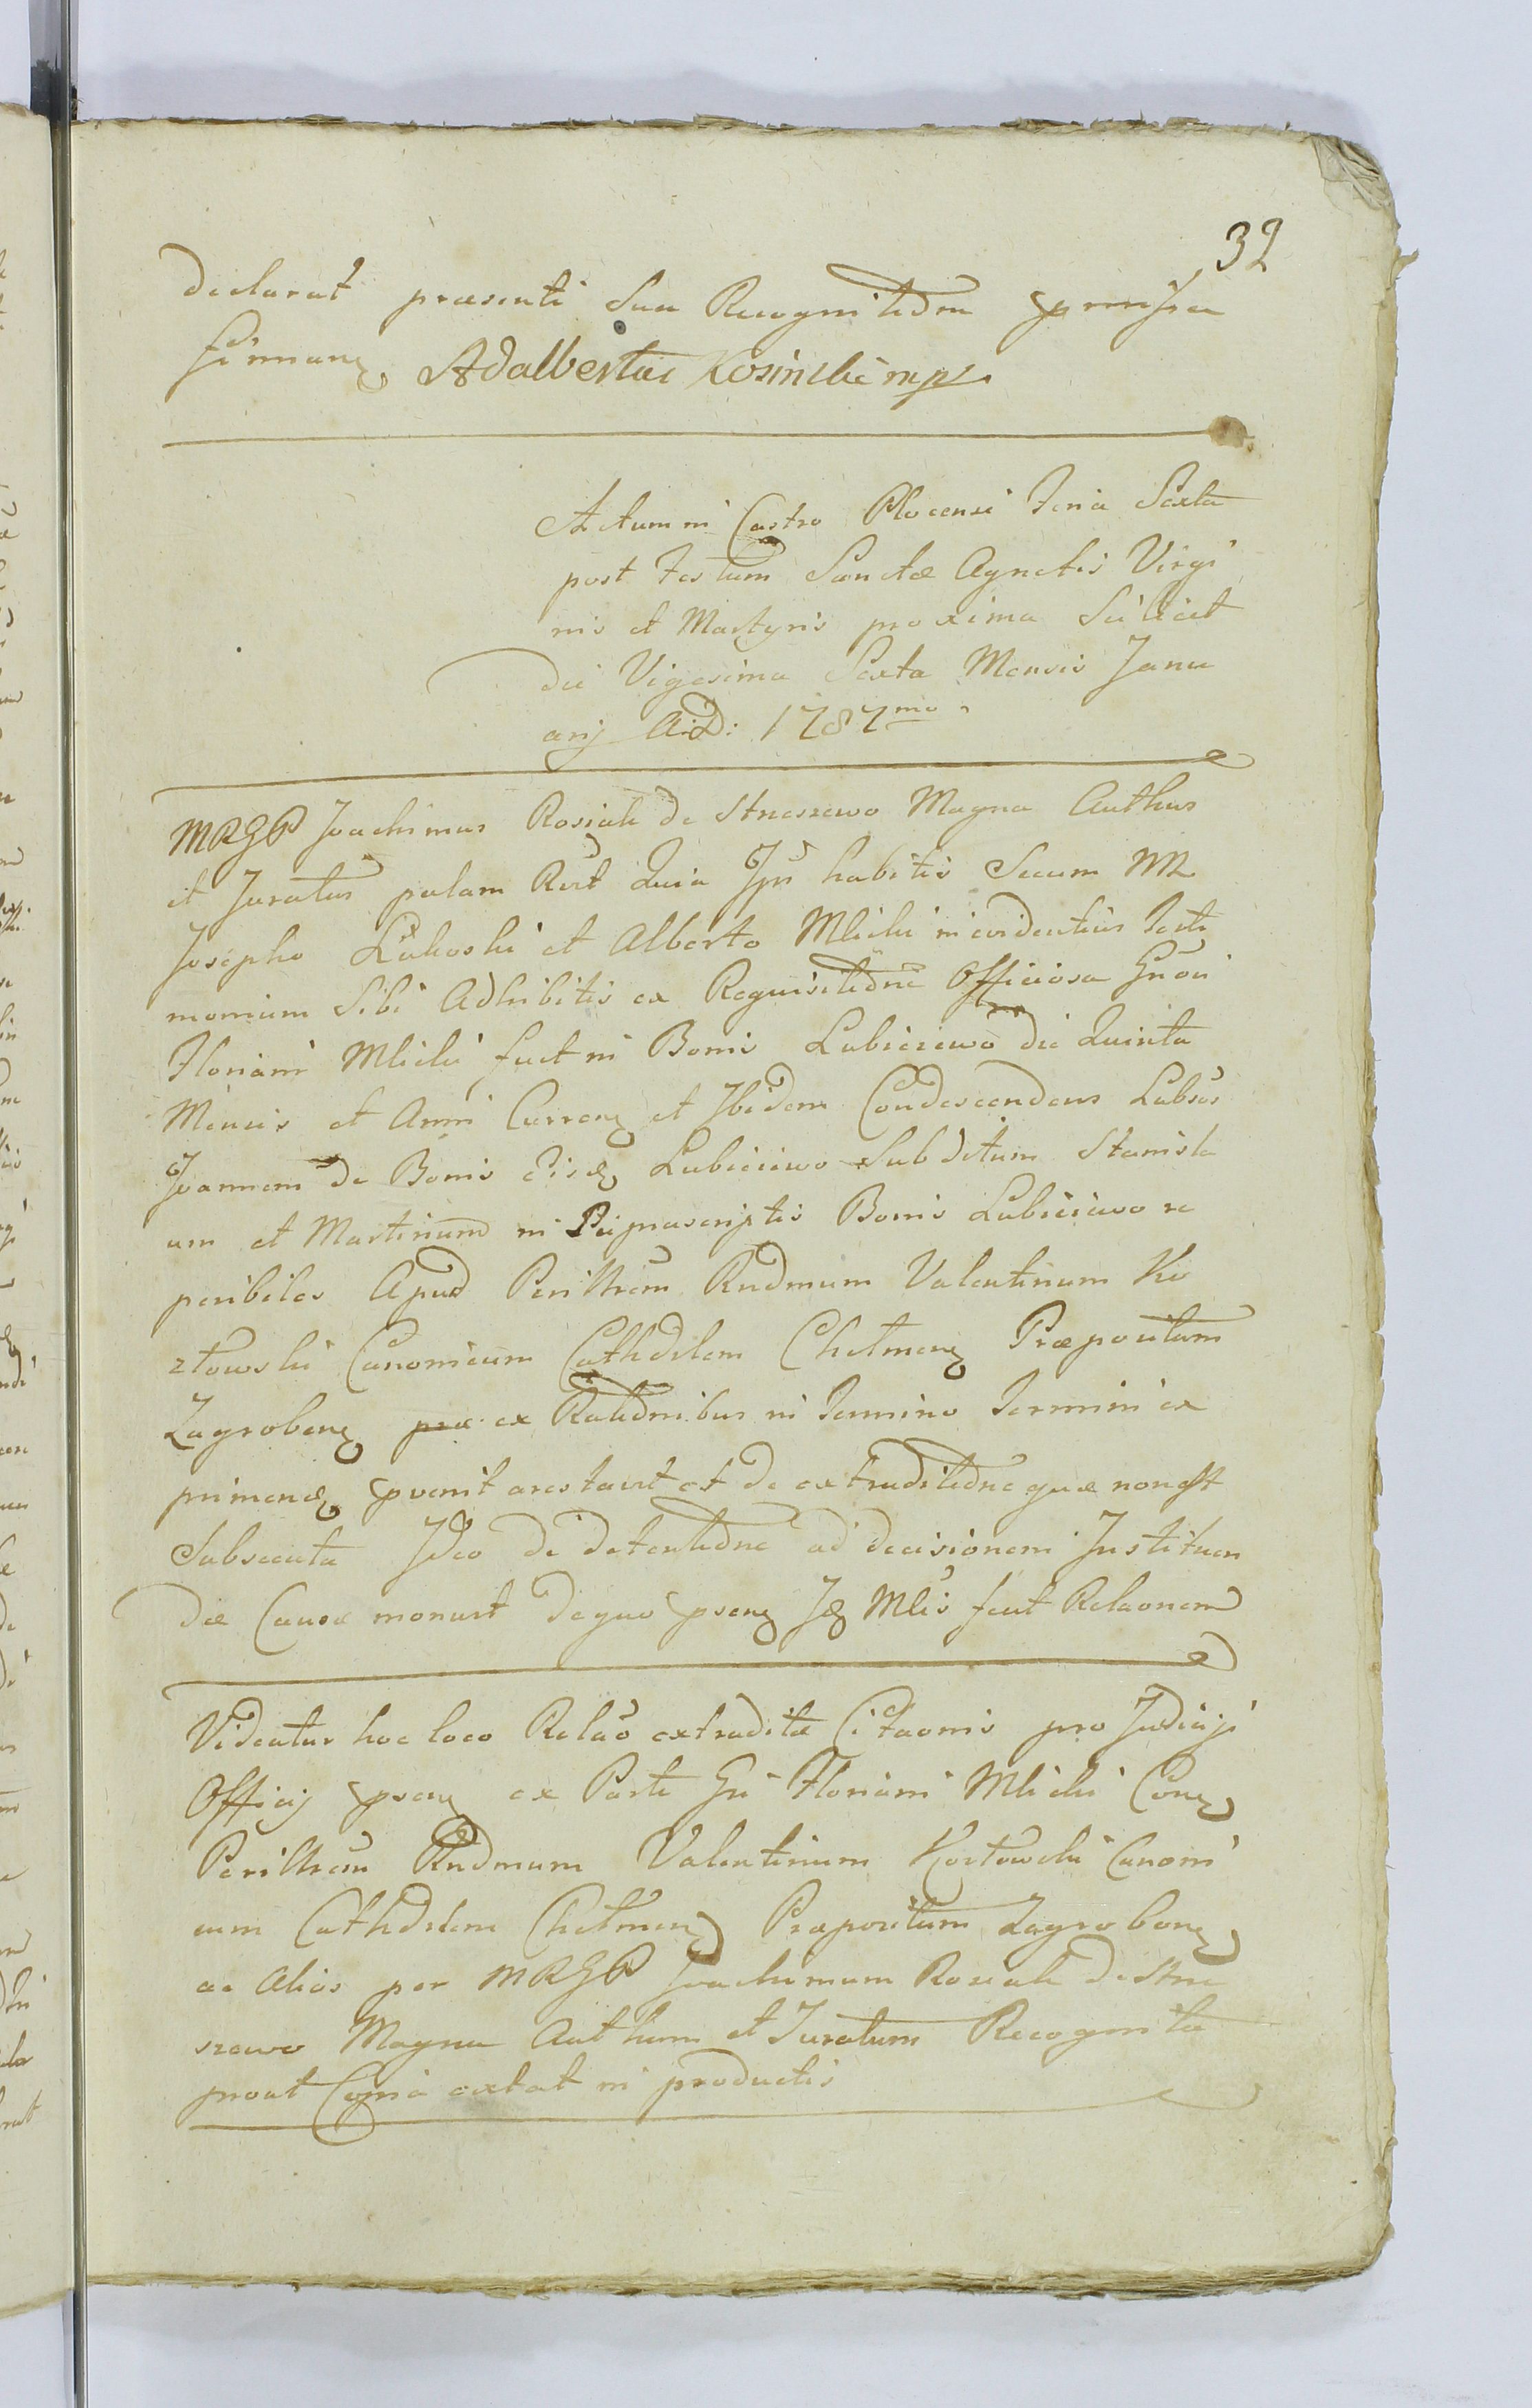 32
declarat praesenti Sua Recognitione praemissa
firman. Adalbertus Kosinski mp
Actum in Castro Plocensi Feria Sexta
post Festum Sanctæ Agnetis Virgi
nis et Martyris proxima Scilicet
die Vigesima Sexta Mensis Janu
arij A:D: 1787mo
MRGP Joachimus Rosiak de Strzeszewo Magna Authus
et Juratus palam Rect Quia Ipse habitis Secum NN
Josepho Lukoski et Alberto Mlicki in evidentius Testi
monium Sibi Adhibitis ex Requisitione Officiosa Gnosi
Floriani Mlicki fuit in Bonis Lubiciewo die Quinta
Mensis et Anni Curren et Ibidem Condescendens Labsos
Joannem de Bonis Eisd Lubiciewo Subditum Stanisla
um et Martinum in praescriptis Bonis Lubiciewo re
peribiles Apud Perillrem Rndmum Valentinum Ko
ztowski Canonicum Cathdrlem Chelmen Præpositum
Zagroben ex Rationibus in Termino Termini ex
primend pvenit arestavit et de extraditione quæ non est
Subsecuta Ideo de detentione ad decisionem Instituen
dæ Causæ monuit de quo psens Id Mlis fecit Relaonem
Videatur hoc loco Relao extraditæ Citaonis pro Judicijs
Officij psens ex Parte Gsi Floriani Mlicki Con
Perillrem Rndmum Valentinum Koztowski Canoni
cum Cathdrlem Chelmen Præpositum Zagroben
ac Alios per MRGP Joachimum Rosiak de Strze
szewo Magna Authum et Juratum Recognita
prout Copia extat in productis